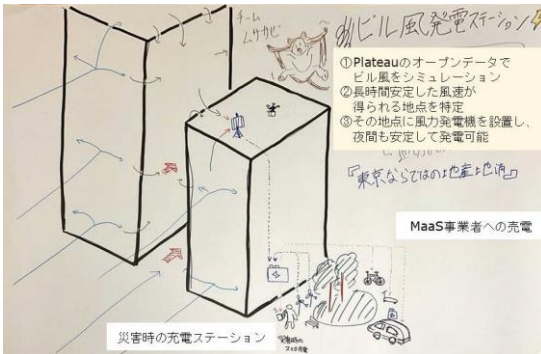 チーム
ムササビ
ビル風発電ステーション
①Plateauのオープンデータで
ビル風をシミュレーション
②長時間安定した風速が
得られる地点を特定
③その地点に風力発電機を設置し、
夜間も安定して発電可能
『東京ならではの地産地消』
MaaS事業者への売電
災害時の充電ステーション